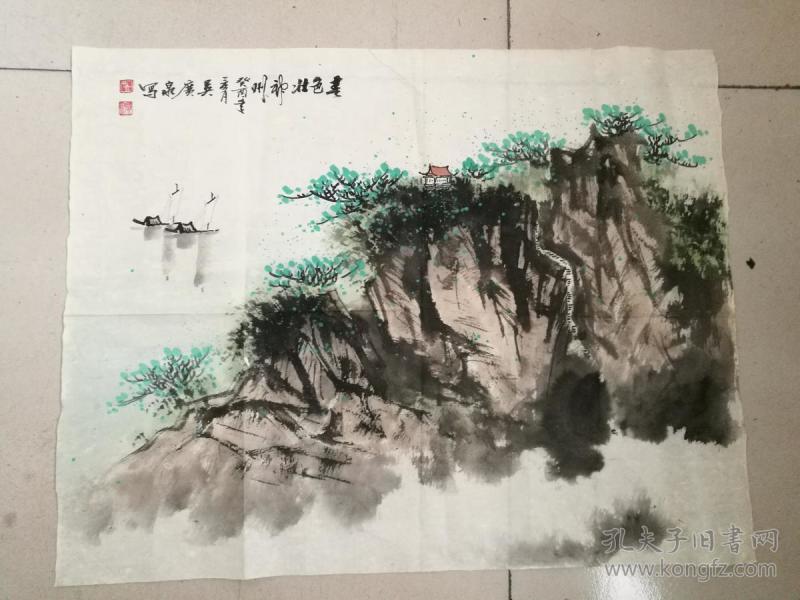 春色壮神州
癸酉年
吴广泉写
孔夫子旧書网
www.kongfz.com